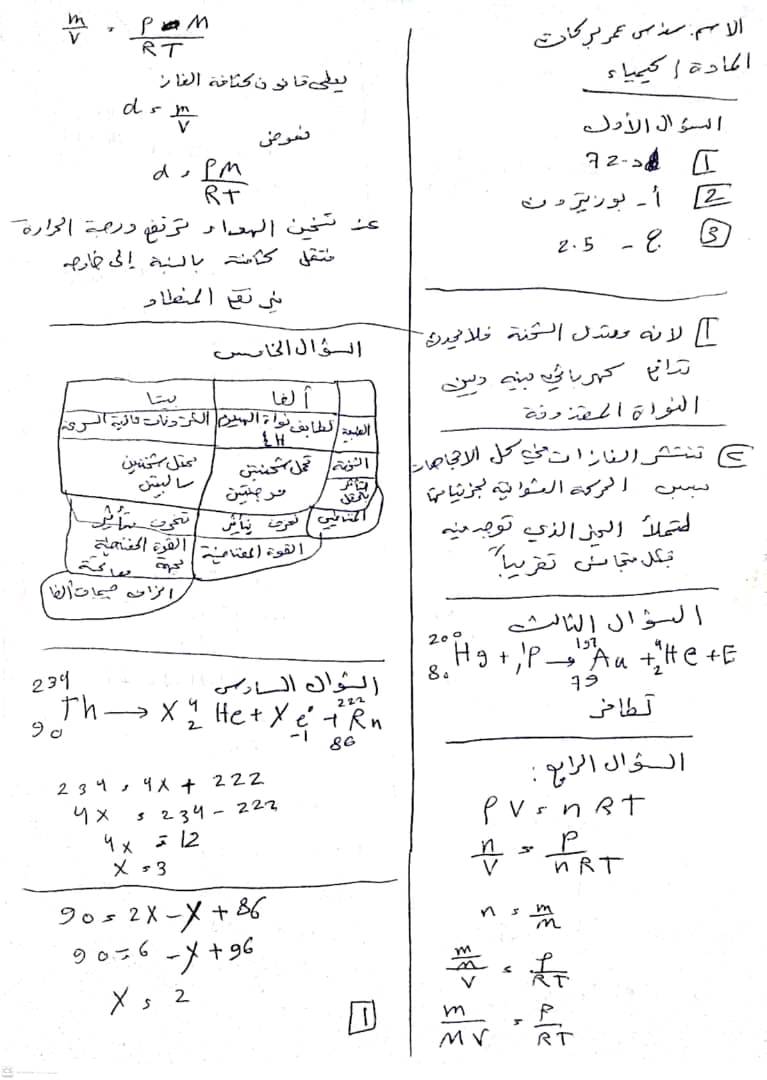 الاسم: سندس عمر بركات
المادة / كيمياء
السؤال الأول
1 د- 72
2 أ- بوزيترون
3 ج - 2.5
1 لانه معتدل الشحنة فلا يحدث
تدافع كهربائي بينه وبين
النواة المقذوفة
2 تنتشر الغازات في كل الاتجاهات
بسبب الحركة العشوائية لجزئياتها
لتملأ الحيز الذي توجد فيه
بشكل متجانس تقريباً
السؤال الثالث
²⁰⁰₈₀Hg + ¹₁P → ¹⁹⁷₇₉Au + ⁴₂He + E
تطافر
السؤال الرابع:
PV = nRT
n/V = P/nRT
n = m/m
m/m/V = P/RT
m/MV = P/RT
m/V = PM/RT
يعطى قانون كثافة الغاز
d = m/V
نعوض
d = PM/RT
عند تسخين الهواء ترتفع درجة الحرارة
فتقل كثافته بالنسبة إلى خارجه
فيرتفع المنطاد
السؤال الخامس
ألفا بيتا
الطبيعة تطابق نواة الهيليوم الكترونات عالية السرعة
الشحنة تحمل شحنتين موجبتين تحمل شحنتين سالبتين
تأثير الحقل المغناطيسي تنحرف بتأثير القوة المغناطيسية تنحرف بتأثير القوة المغناطيسية بجهة معاكسة
انحراف جسيمات ألفا
السؤال السادس
²³⁴₉₀Th → X ⁴₂He + Y ⁰₋₁e + ²²²₈₆Rn
234 = 4X + 222
4X = 234 - 222
4X = 12
X = 3
90 = 2X - Y + 86
90 = 6 - Y + 96
Y = 2
1
CS